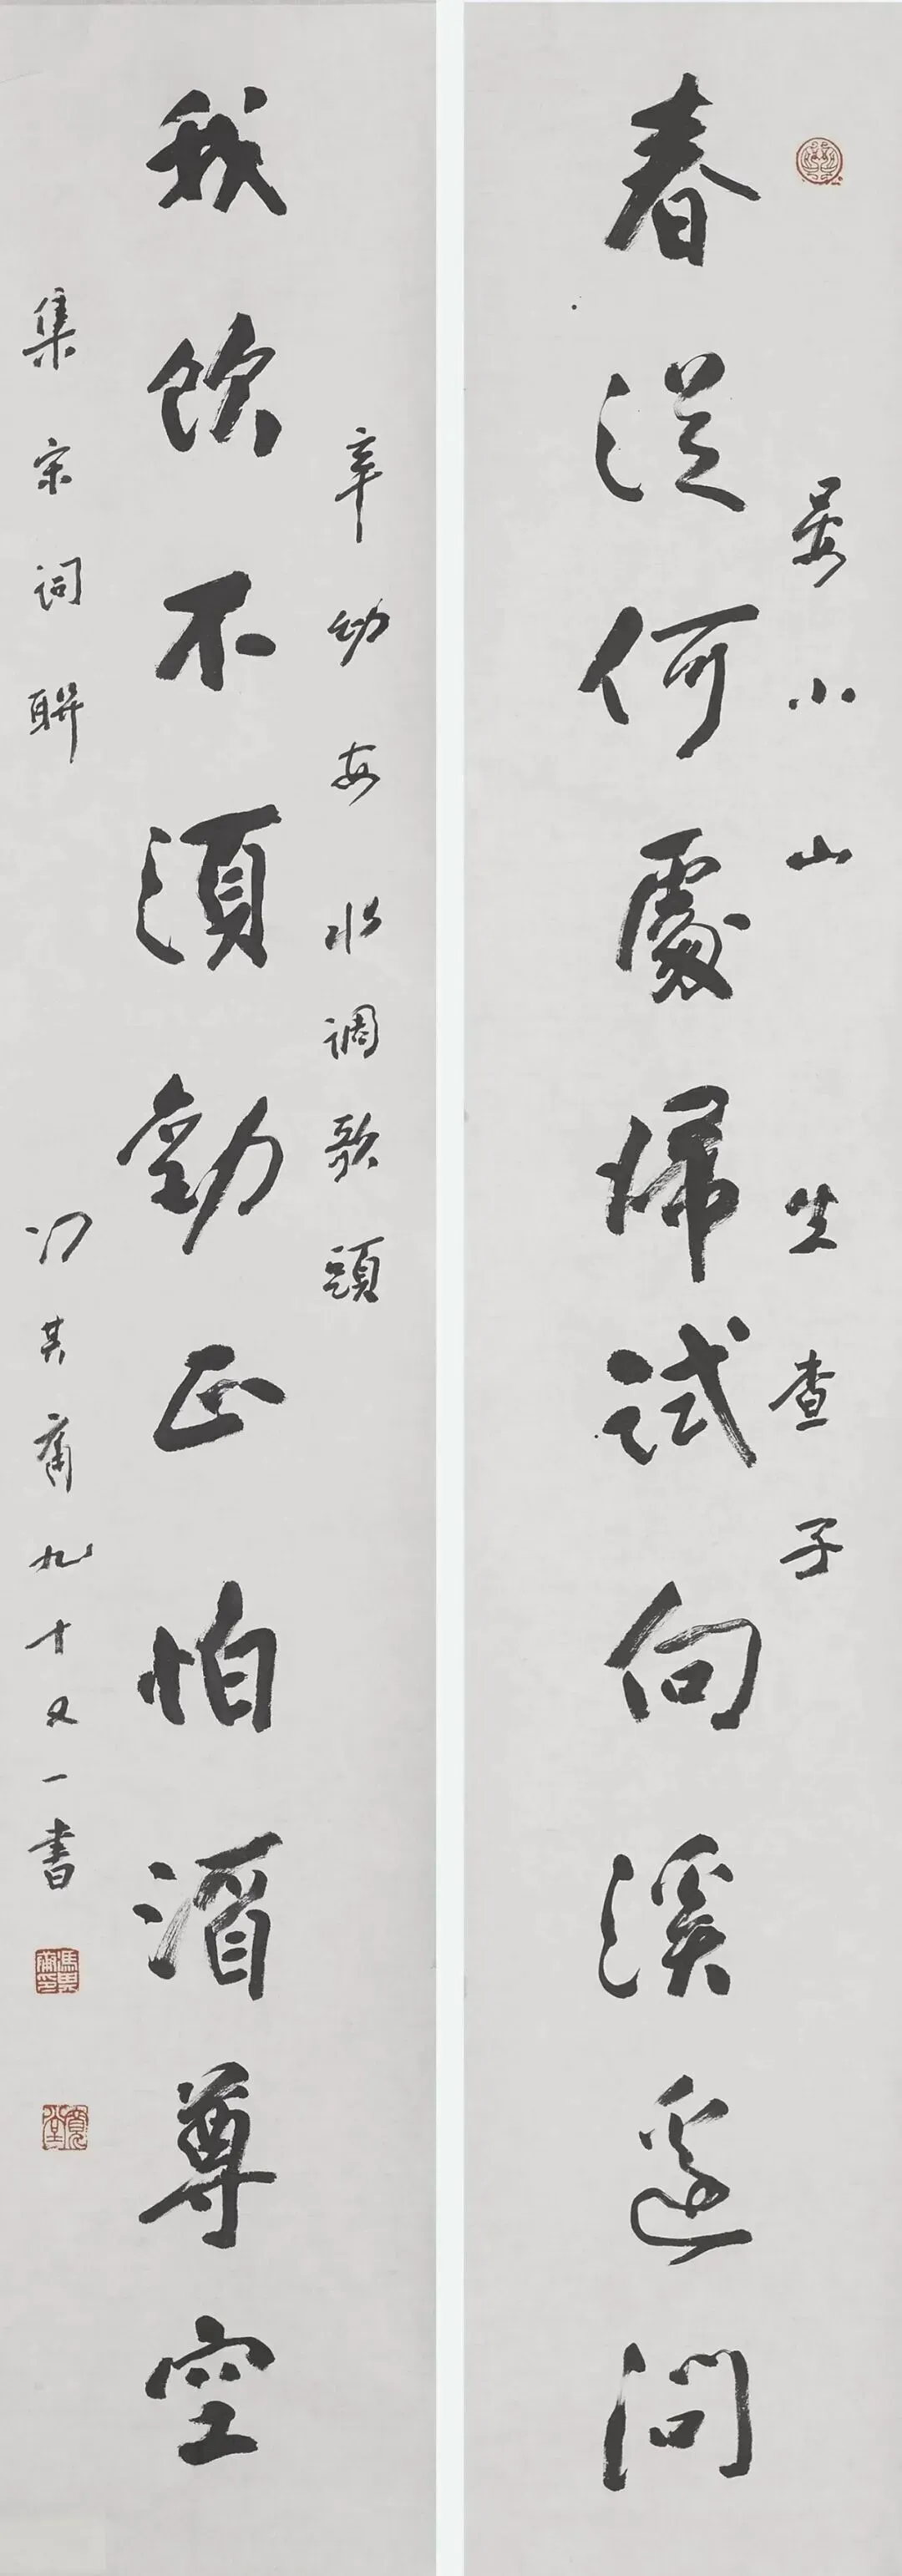 春從何處歸試向溪邊問
晏小山 生查子
我飲不須勸正怕酒尊空
辛幼安 水调歌頭
集宋詞聯
冯其庸九十又一書
馮其庸印
寬堂